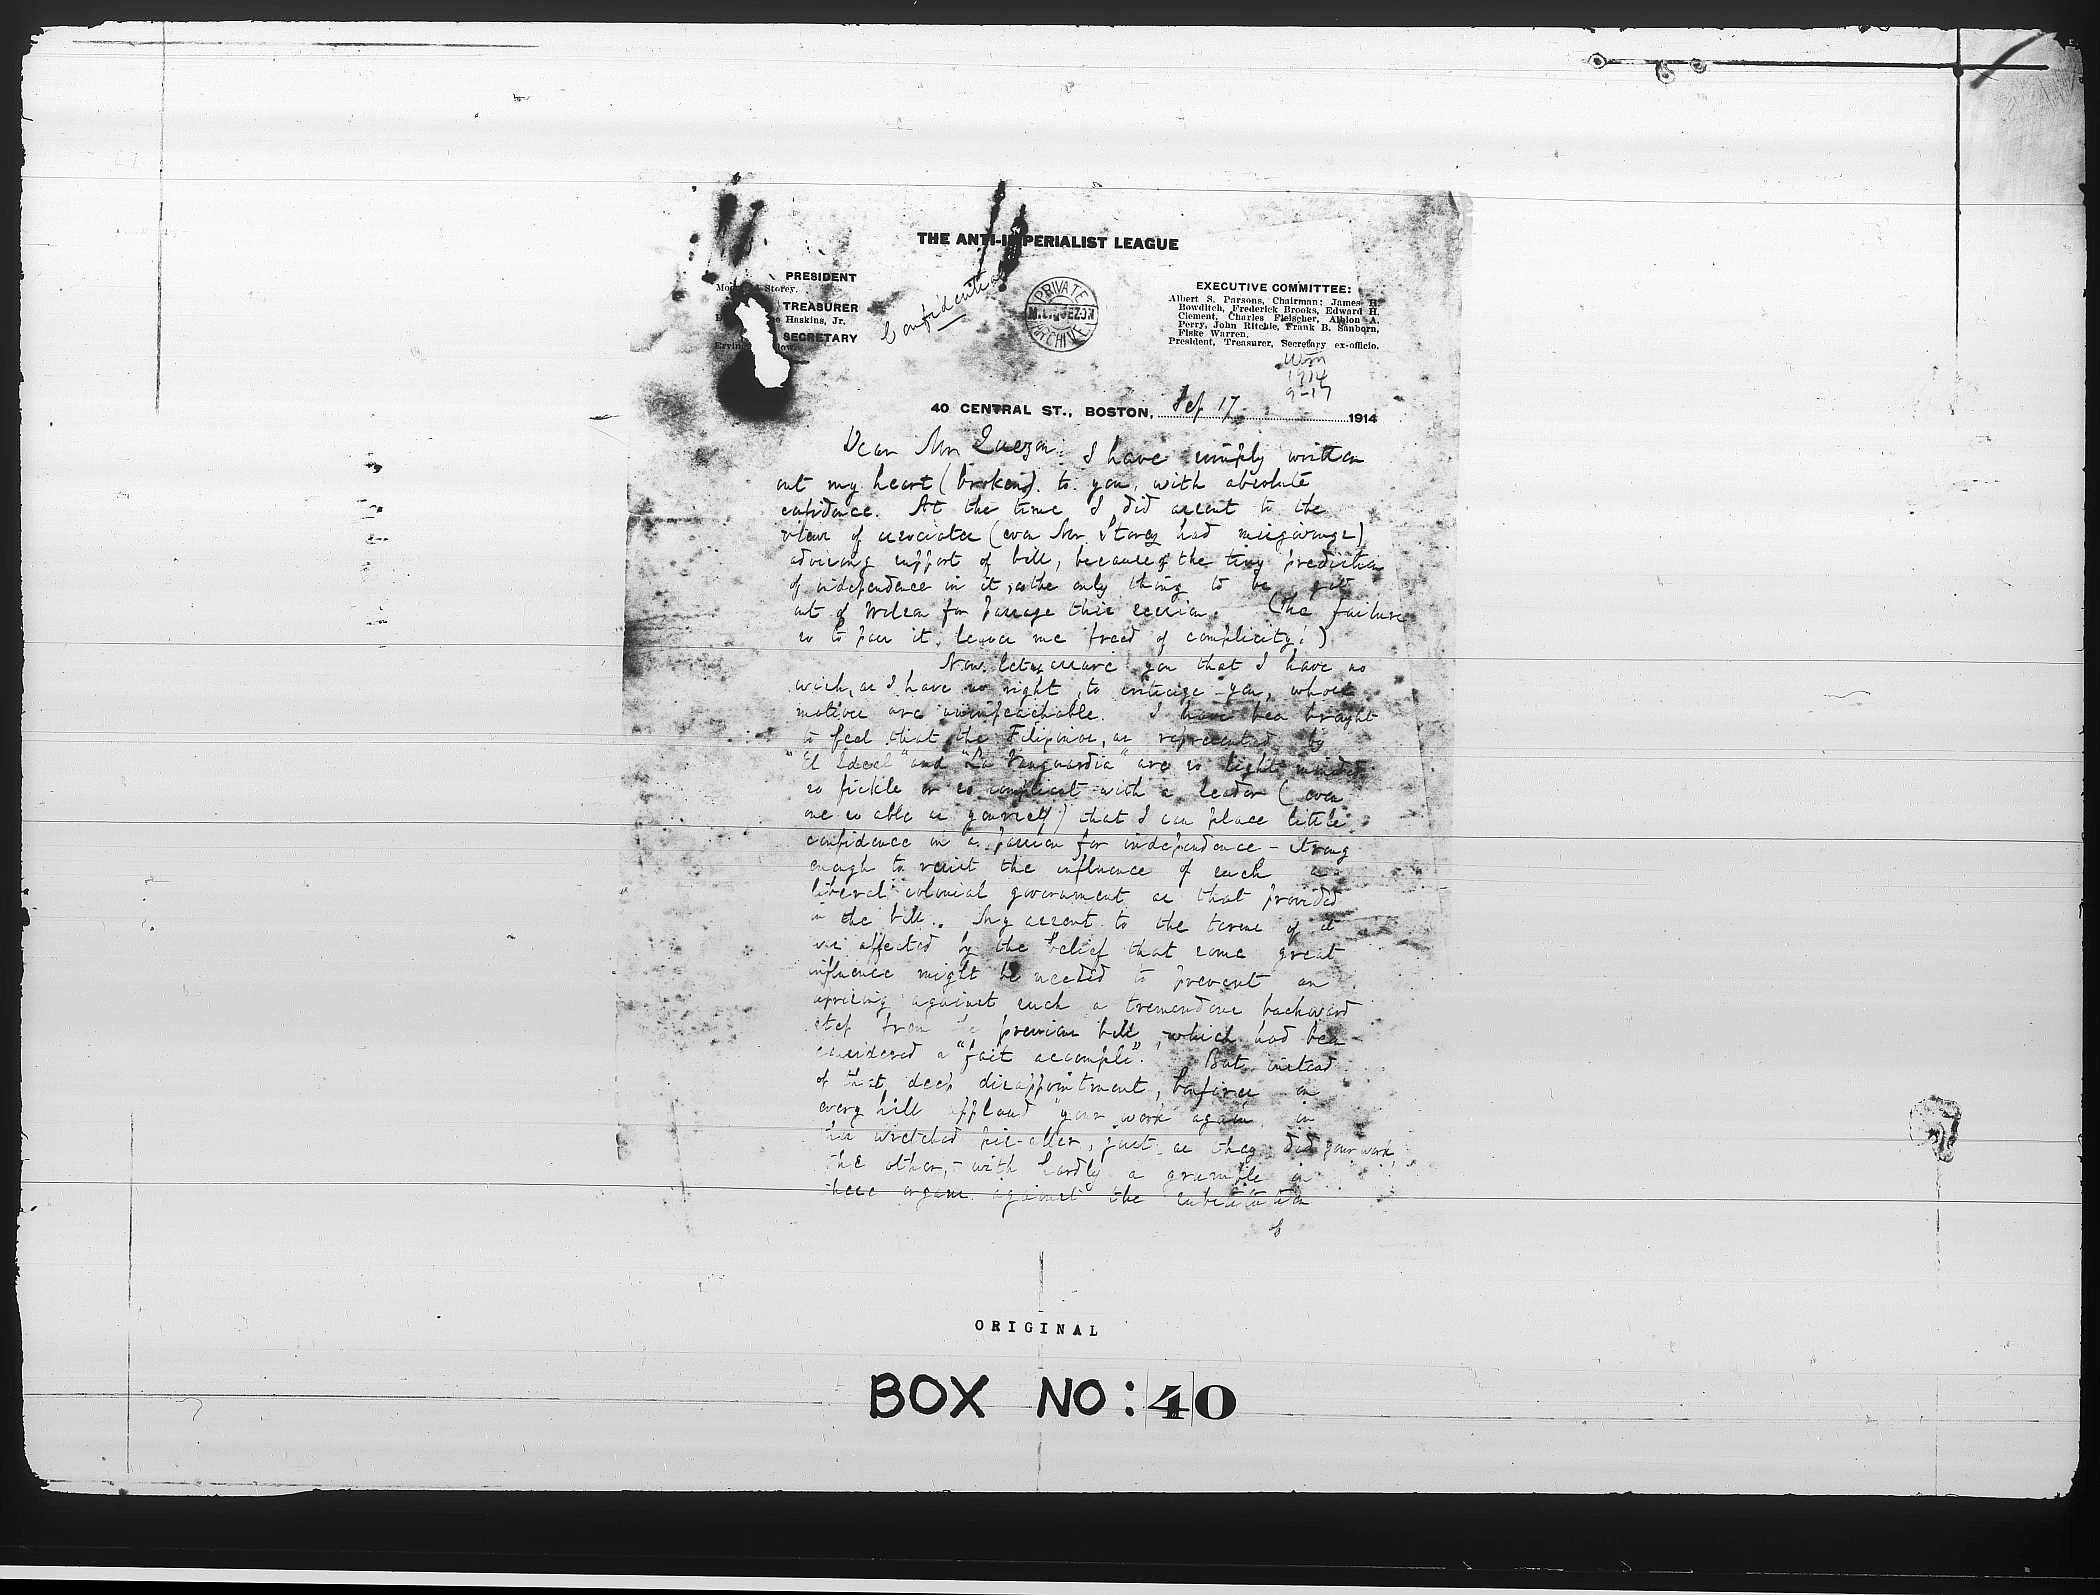 THE ANTI-IMPERIALIST LEAGUE
PRESIDENT
Storey.
TREASURER
Haskins, Jr.
SECRETARY
Confidential
PRIVATE
M.L. QUEZON
ARCHIVE
EXECUTIVE COMMITTEE:
Albert S. Parsons, Chairman; James H.
Bowditch, Frederick Brooks, Edward H.
Clement, Charles Fleischer, Albion A.
Perry, John Ritchie, Frank B. Sanborn,
Fiske Warren.
President, Treasurer, Secretary ex-officio.
1914
9-17
40 CENTRAL ST., BOSTON, Sep 17 1914
Dear Mr Quezon: I have simply written
out my heart (broken) to you, with absolute
confidence. At the time I did assent to the
view of associates (even Mr. Storey had misgivings)
advising support of bill, because of the tiny prediction
of independence in it, as the only thing to be got
out of Wilson for passage this session. (The failure
so to pass it, leaves me freed of complicity!)
Now let me assure you that I have no
wish, as I have no right, to criticize you, whose
motives are unimpeachable. I have been brought
to feel that the Filipinos, as represented by
"El Ideal" and "La Vanguardia" are so light minded
so fickle or so complicit with a leader (even
one so able as yourself) that I can place little
confidence in a passion for independence - strong
enough to resist the influence of such a
liberal colonial government as that provided
in the bill. My assent to the terms of it
was affected by the belief that some great
influence might be needed to prevent an
uprising against such a tremendous backward
step from the previous bill, which had been
considered a "fait accompli". But instead
of that deep disappointment, bonfires on
every hill applaud your work again in
this wretched pis-aller, just as they did your work
the other, - with hardly a grumble in
these organs against the substitution
of
ORIGINAL
BOX NO: 40